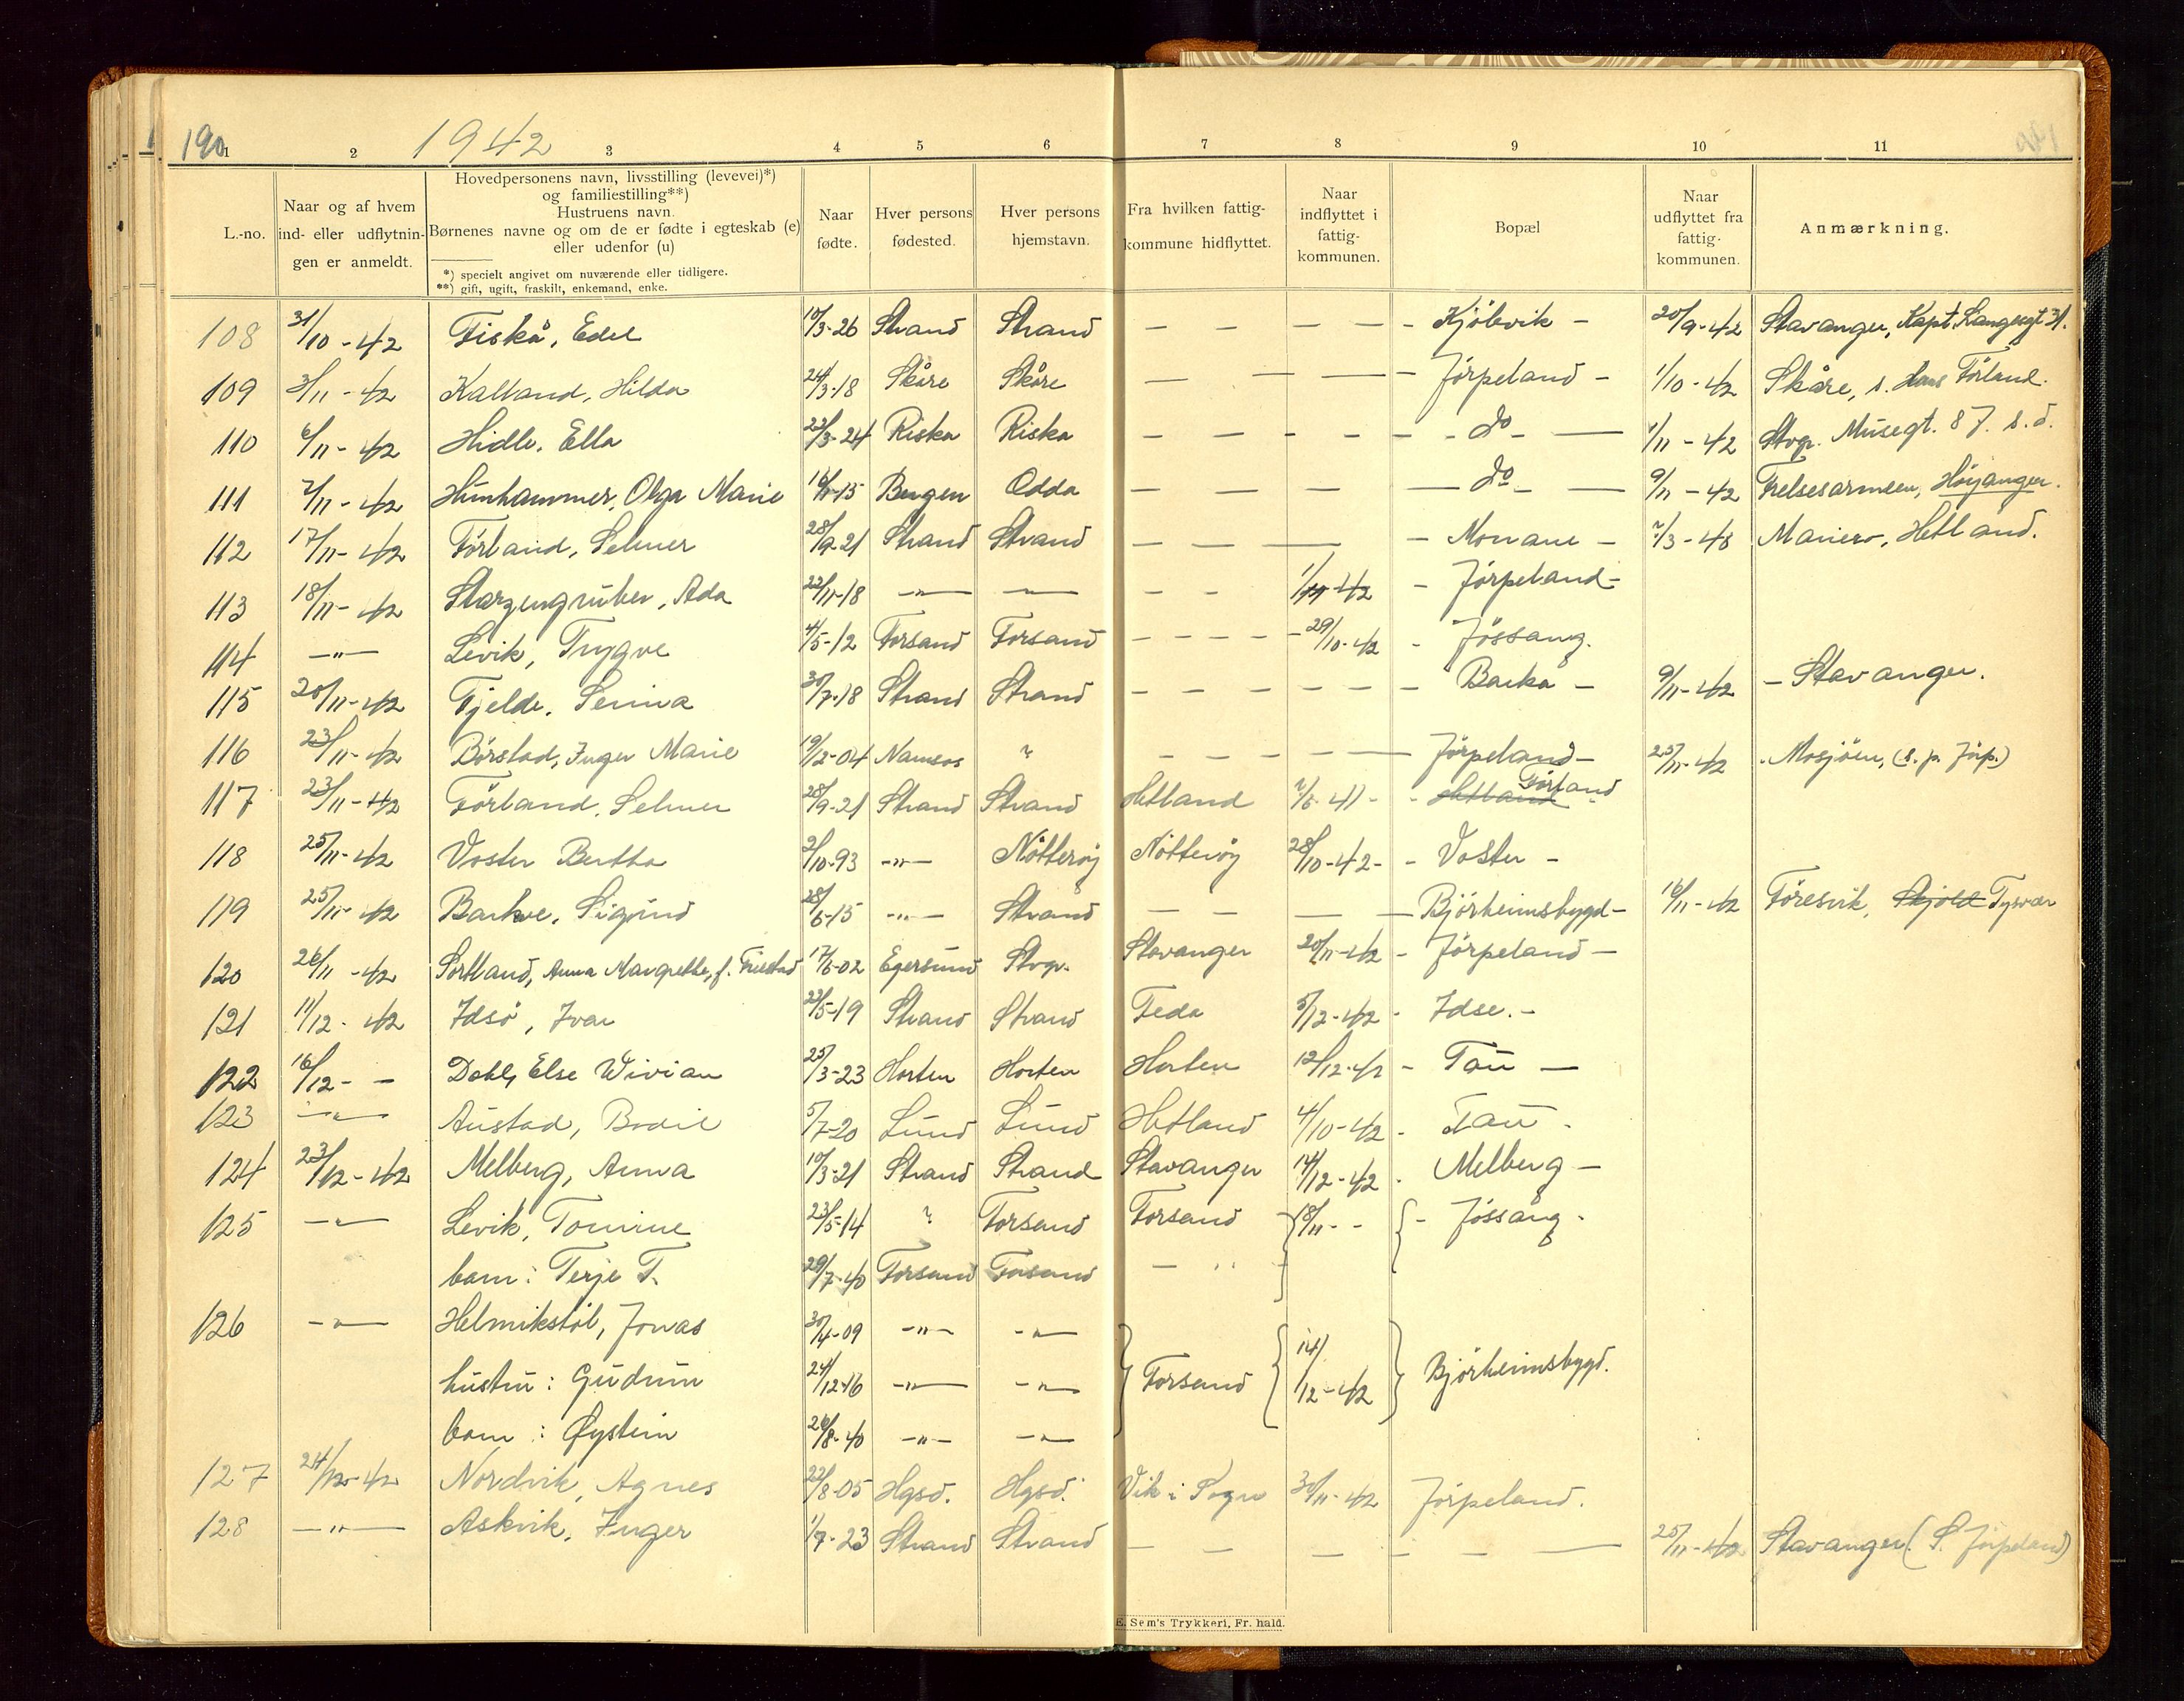 190 1942
1 2 3 4 5 6 7 8 9 10 11
L.-no. | Naar og af hvem ind- eller udflytningen er anmeldt. | Hovedpersonens navn, livsstilling (levevei)*) og familiestilling**) Hustruens navn. Børnenes navne og om de er fødte i egteskab (e) eller udenfor (u) *) specielt angivet om nuværende eller tidligere. **) gift, ugift, fraskilt, enkemand, enke. | Naar fødte. | Hver persons fødested. | Hver persons hjemstavn. | Fra hvilken fattigkommune hidflyttet. | Naar indflyttet i fattigkommunen. | Bopæl | Naar udflyttet fra fattigkommunen. | Anmærkning.
108 31/10-42 Fiskå, Edel 10/3-26 Strand Strand — — — — - Kjölevik - 20/9-42 Stavanger, Kapt. Langesgt 31.
109 3/11-42 Kalland, Hilda 24/3-18 Skåre Skåre — - — - Jörpeland - 1/10-42 Skåre, s. Hans Förland.
110 6/11-42 Hidle, Ella 22/3-24 Riska Riska — — - - — - do - — 1/11-42 Stvgr. Musegt. 87. s.d.
111 7/11-42 Hunhammer, Olga Marie 16/8-15 Bergen Odda — — — — do - — 9/11-42 Frelsesarmeen, Höyanger.
112 17/11-42 Förland, Selmer 28/9-21 Strand Strand — — — - Monane - 2/3-48 Mariero, Hetland.
113 18/11-42 Starzengruber, Ada 22/11-18 -"- -"- - - 1/11-42 - Jörpeland-
114 -"- Levik, Trygve 4/5-12 Forsand Forsand - - - - -29/10-42 - Jössang.
115 20/11-42 Fjelde, Serina 30/7-18 Strand Strand - - - - - - Barka - 9/11-42 - Stavanger.
116 23/11-42 Börstad, Inger Marie 19/12-04 Namsos ? - - - - — Jörpeland- 25/11-42 . Mosjöen, (s. p. Jörp.)
117 23/11-42 Förland, Selmer 28/9-21 Strand Strand Hetland 2/6-41- - Hetland Förland
118 25/11-42 Voster Bertha 2/10-93 -"- Nötteröy Nötteröy 28/10-42- - Voster -
119 25/11-42 Barkve, Sigund 28/6-15 -"- Strand — — — — Björheimsbygd- 16/11-42 Föresvik, Skjold Tysvær
120 26/11-42 Sörtland, Anna Margrethe, f. Friestad 17/6-02 Egersund Stvgr. Stavanger 20/11-42 - Jörpeland -
121 11/12-42 Idsö, Ivar 23/5-19 Strand Strand Feda 5/12-42 - Idse. -
122 16/12- - Dahl, Else Wivian 25/3-23 Horten Horten Horten 12/12-42 - Tau —
123 -"- Austad, Bodil 5/7-20 Lund Lund Hetland 4/10-42 - Tau -
124 23/12-42 Melberg, Anna 10/3-21 Strand Strand Stavanger 14/12-42 . Melberg -
125 -"- Levik, Tomine 23/5-14 ? Forsand Forsand 18/11- - - Jössang -
barn: Terje T. 29/7-40 Forsand Forsand - "
126 -"- Helmikstöl, Jonas 30/4-09 -"- -"-
hustru: Gudrun 24/12-16 -"- -"- Forsand 14/12-42 Björheimsbygd.
barn: Øystein 26/8-40 -"- -"-
127 24/12-42 Nordvik, Agnes 22/8-05 Hgsd. Hgsd. Vik i Sogn 30/11-42 Jörpeland.
128 -"- Askvik, Inger 1/7-23 Strand Strand — — — - - — 25/11-42 Stavanger (S. Jörpeland)
E. Sem's Trykkeri, Fr.hald.